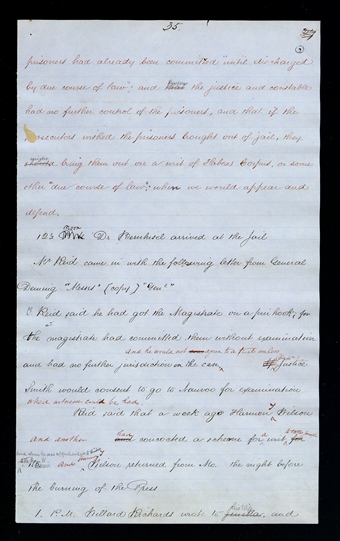 35.
prisoners had already been committed "until discharged
by due course of law"; and therefore the justice and constable
had no further control of the prisoners, and that if the
prosecutors wished the prisoners brought out of jail, they
might bring them out on a writ of Habeas Corpus, or some
other "due course of law"; when we would appear and
defend.
noon
Dr. Bernhisel arrived at the Jail
Mr Reid came in with the following letter from General
Deming "Messrs" (copy) "Genl"
Reid said he had got the Magistrate on a pin hook, for
the magistrate had committed them without examination
and he would not consent to it unless
and had no further jurisdiction in the case, Justice
Smith would consent to go to Nauvoo for examination
where witnesses could be had
Reid said that a week ago Harmon Wilson
and another had concocted a scheme for a writ,
and Wilson returned from Mo. the night before
the burning of the Press
1. P.M. Willard Richards wrote to and